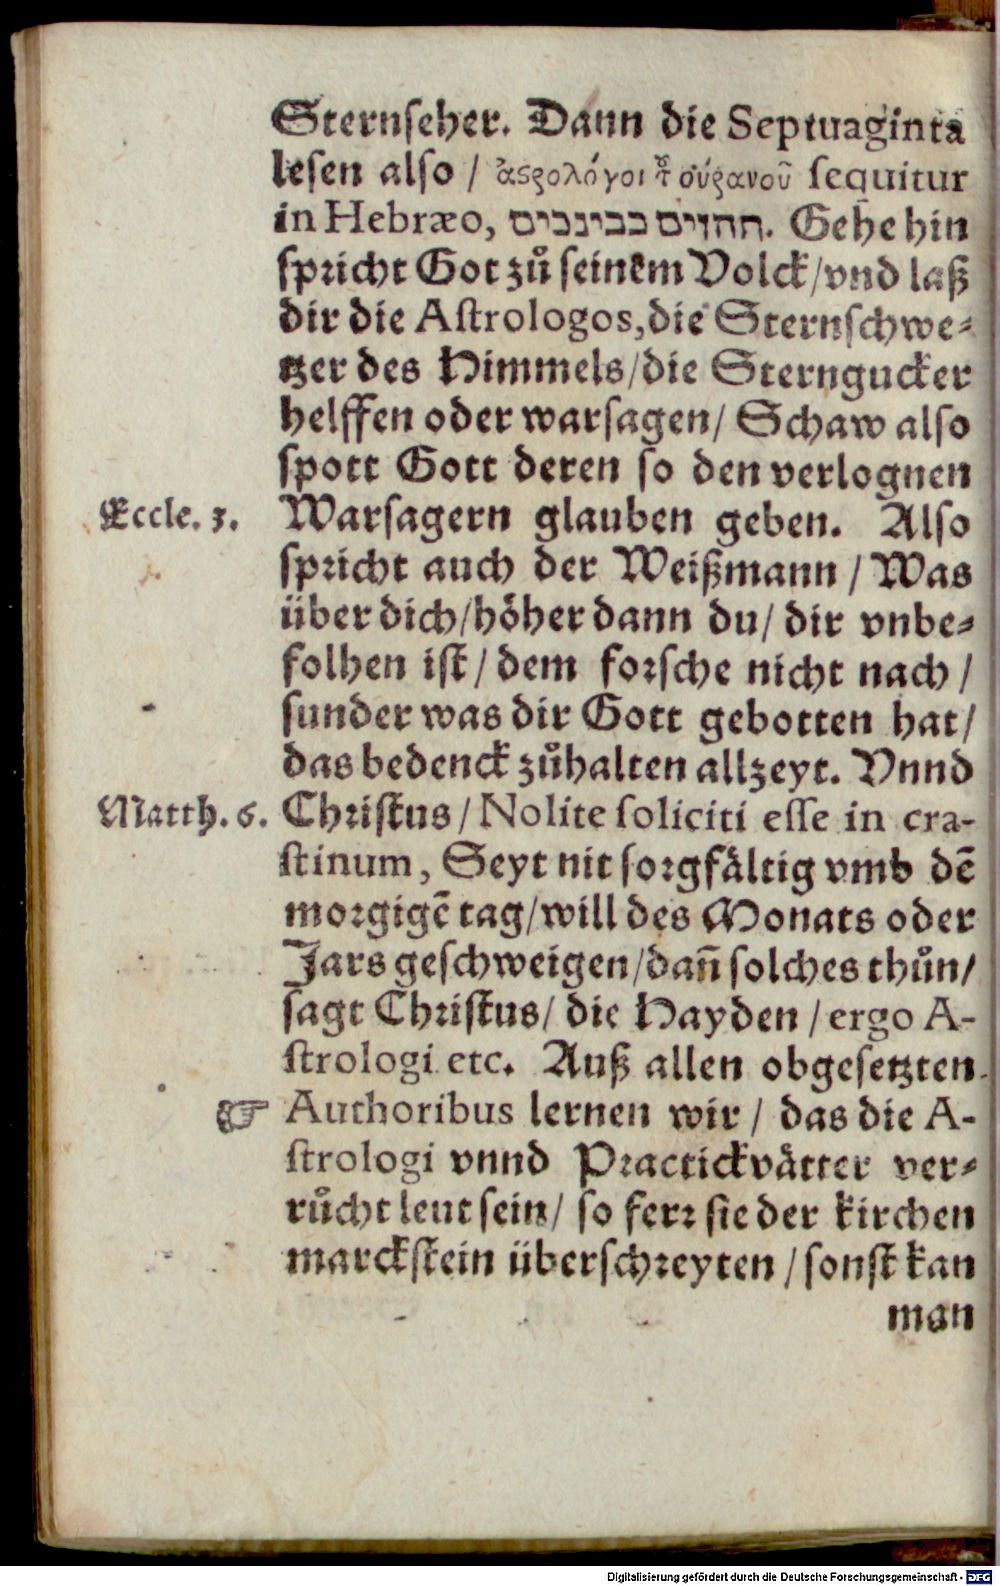 Sternseher. Dann die Septuaginta
lesen also / ἀςρολόγοι τ̃ οὐρανοῦ sequitur
in Hebræo, החזים בכינבים. Gehe hin
spricht Got zů seinem Volck/vnd laß
dir die Astrologos, die Sternschwe-
tzer des Himmels/die Sterngucker
helffen oder warsagen/ Schaw also
spott Gott deren so den verlognen
Eccle. 3. Warsagern glauben geben. Also
spricht auch der Weißmann / Was
über dich/höher dann du/ dir vnbe-
folhen ist/ dem forsche nicht nach /
sunder was dir Gott gebotten hat/
das bedenck zůhalten allzeyt. Vnnd
Matth. 6. Christus/ Nolite soliciti esse in cra-
stinum, Seyt nit sorgfältig vmb dē
morgigē tag/will des Monats oder
Jars geschweigen/dañ solches thůn/
sagt Christus/ die Hayden / ergo A-
strologi etc. Auß allen obgesetzten
☞ Authoribus lernen wir / das die A-
strologi vnnd Practickvätter ver-
růcht leut sein/ so ferr sie der kirchen
marckstein überschreyten / sonst kan
man
Digitalisierung gefördert durch die Deutsche Forschungsgemeinschaft - DFG